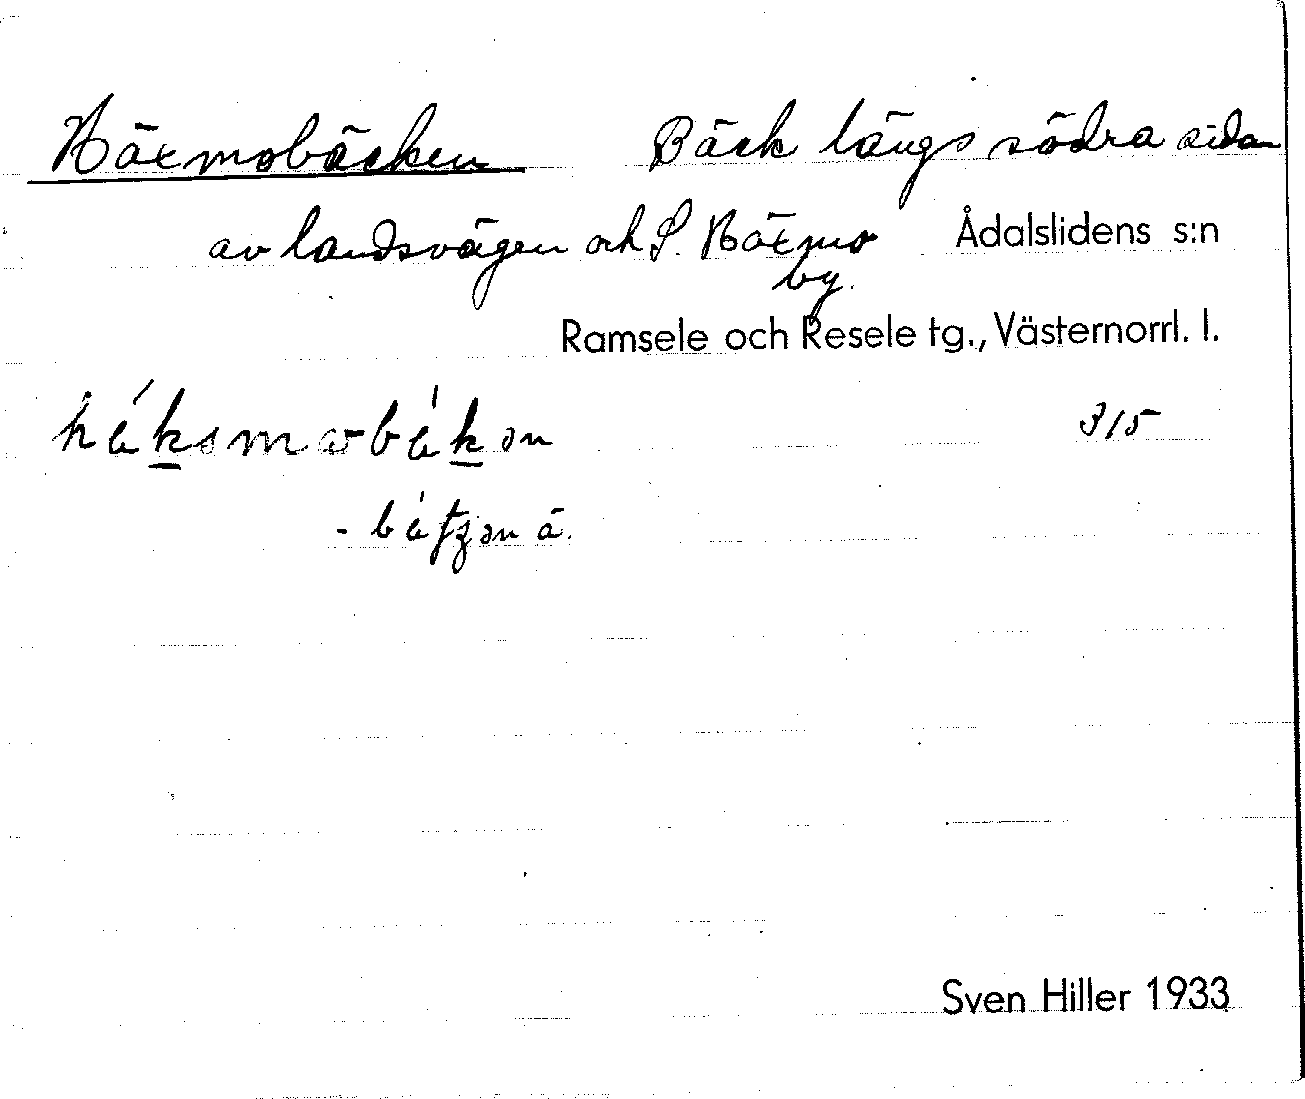 Näxmobäcken Bäck längs södra sidan
av landsvägen och S. Näxmo by. Ådalslidens s:n
Ramsele och Resele tg., Västernorrl. l.
315
Sven Hiller 1933